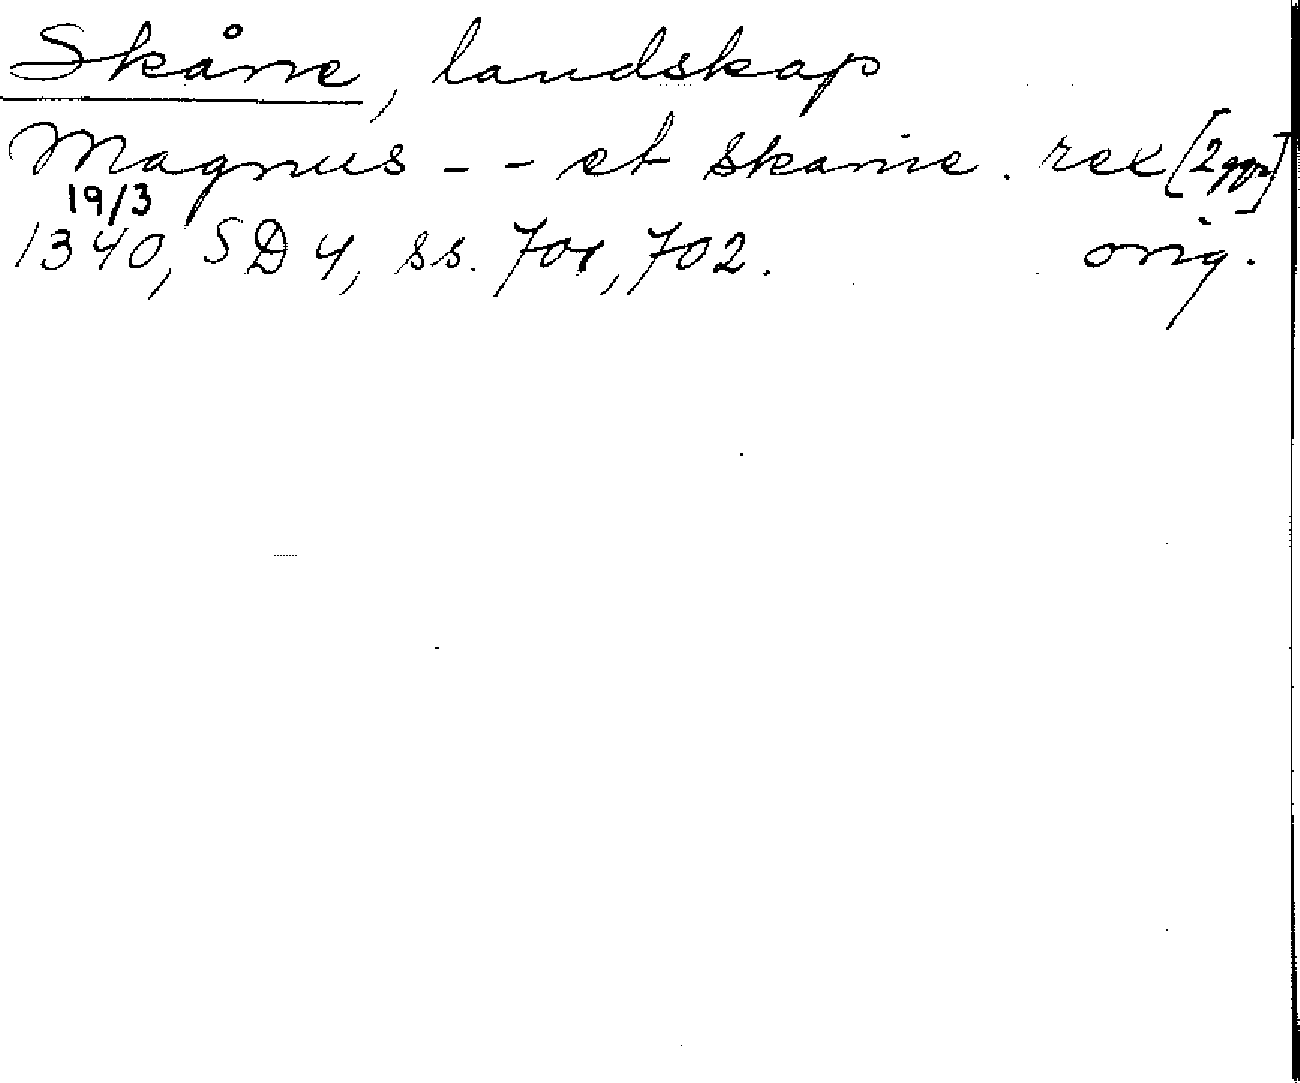 Skåne, landskap
Magnus - - et skanie. rex [2 ggr]
19/3
1340, SD 4, ss. 701, 702. orig.